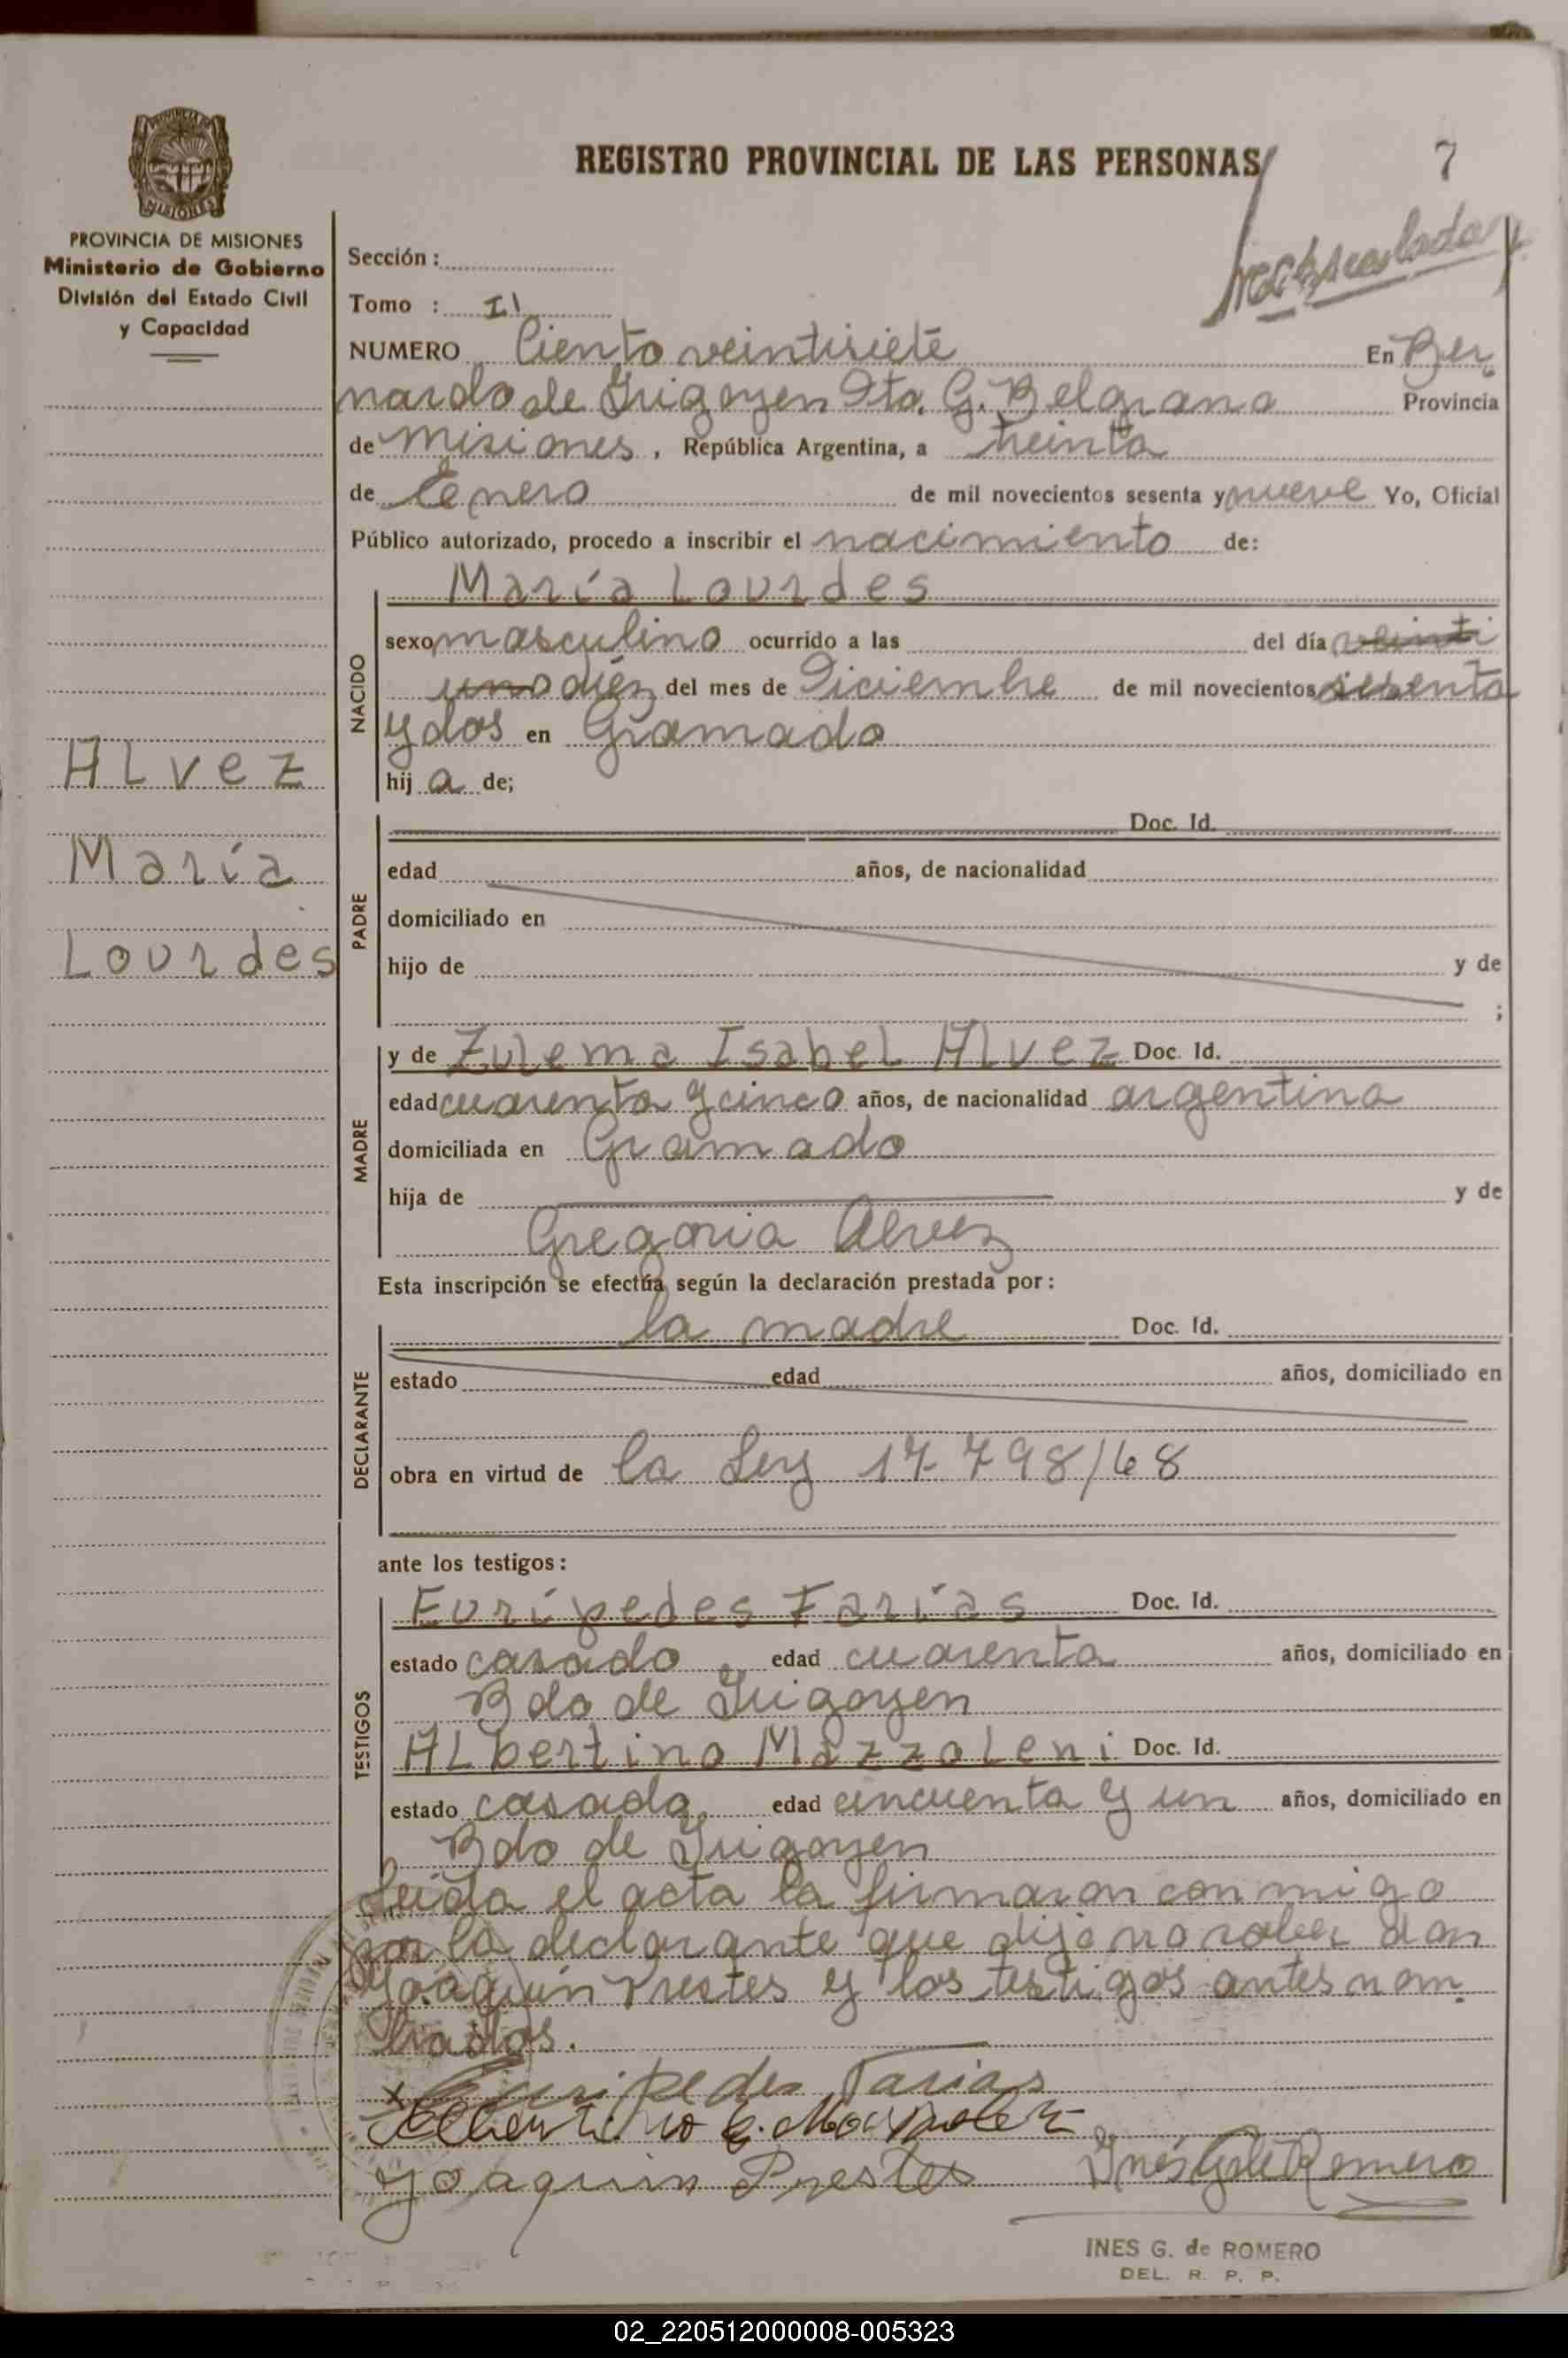 REGISTRO PROVINCIAL DE LAS PERSONAS
7
PROVINCIA DE MISIONES
Ministerio de Gobierno
División del Estado Civil
y Capacidad
Sección :
Tomo : II
NUMERO Ciento veintisiete En Ber
nardo de Irigoyen Dto. G. Belgrano Provincia
de Misiones, República Argentina, a treinta
de Enero de mil novecientos sesenta y nueve Yo, Oficial
Público autorizado, procedo a inscribir el nacimiento de:
María Lourdes
NACIDO
sexo masculino ocurrido a las del día veinti
uno diéz del mes de Diciembre de mil novecientos sesenta
y dos en Gramado
hij a de;
Alvez
María
Lourdes
PADRE
Doc. Id.
edad años, de nacionalidad
domiciliado en
hijo de y de
;
MADRE
y de Zulema Isabel Alvez Doc. Id.
edad cuarenta y cinco años, de nacionalidad argentina
domiciliada en Gramado
hija de y de
Gregoria Alvez
Esta inscripción se efectúa según la declaración prestada por:
DECLARANTE
la madre Doc. Id.
estado edad años, domiciliado en
obra en virtud de la Ley 17798/68
ante los testigos:
TESTIGOS
Eurípedes Farías Doc. Id.
estado casado, edad cuarenta años, domiciliado en
Bdo de Irigoyen
Albertino Mazzoleni Doc. Id.
estado casado, edad cincuenta y un años, domiciliado en
Bdo de Irigoyen
Leida el acta la firmaron conmigo
por la declarante que dijo no saber don
Joaquín Prestes y los testigos antes nom
brados.
x Euripedes Farias
Albertino G. Mazzoleni
Joaquin Prestes Inés G de Romero
INES G. de ROMERO
DEL. R. P. P.
02_220512000008-005323